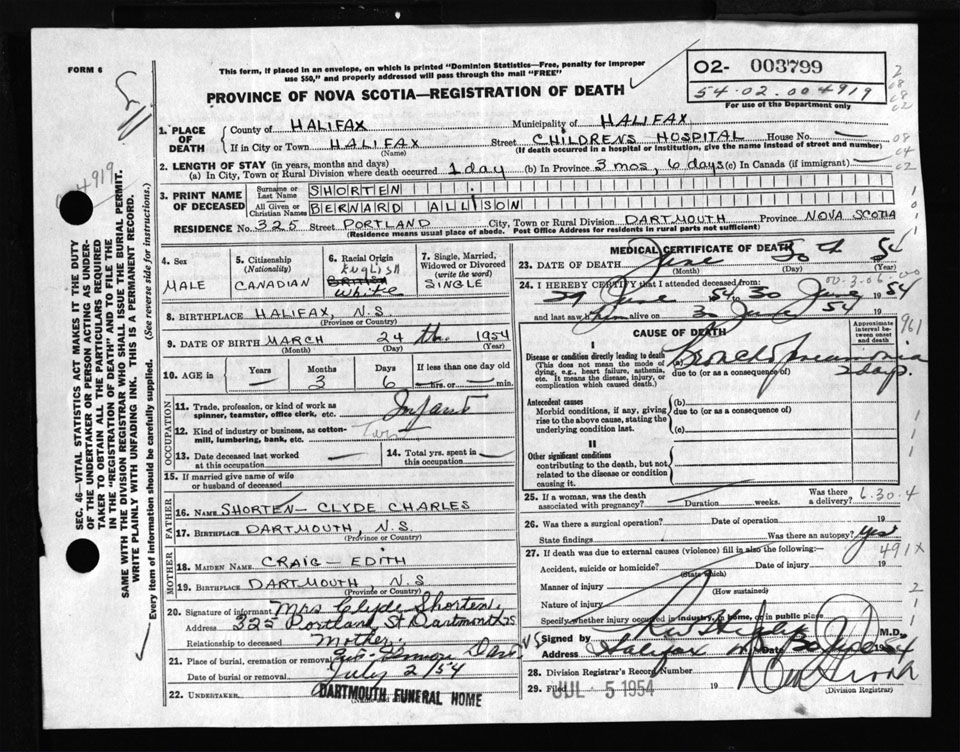 FORM 6
This form, if placed in an envelope, on which is printed "Dominion Statistics—Free, penalty for improper
use $50," and properly addressed will pass through the mail "FREE"
PROVINCE OF NOVA SCOTIA—REGISTRATION OF DEATH
02- 003799
54.02.004919
For use of the Department only
4919
1. PLACE OF DEATH
County of HALIFAX Municipality of HALIFAX
If in City or Town HALIFAX (Name) Street CHILDRENS HOSPITAL House No. —
(If death occurred in a hospital or institution, give the name instead of street and number)
2. LENGTH OF STAY (in years, months and days)
(a) In City, Town or Rural Division where death occurred 1 day (b) In Province 3 mos, 6 days (c) In Canada (if immigrant) —
3. PRINT NAME OF DECEASED
Surname or Last Name SHORTEN
All Given or Christian Names BERNARD ALLISON
RESIDENCE No. 325 Street PORTLAND City, Town or Rural Division DARTMOUTH Province NOVA SCOTIA
(Residence means usual place of abode. Post Office Address for residents in rural parts not sufficient)
4. Sex
MALE
5. Citizenship (Nationality)
CANADIAN
6. Racial Origin
English
BRITISH
White
7. Single, Married, Widowed or Divorced (write the word)
SINGLE
8. BIRTHPLACE HALIFAX, N.S.
(Province or Country)
9. DATE OF BIRTH MARCH 24 th 1954
(Month) (Day) (Year)
10. AGE in Years — Months 3 Days 6 If less than one day old — hrs. or — min.
OCCUPATION
11. Trade, profession, or kind of work as spinner, teamster, office clerk, etc. Infant
12. Kind of industry or business, as cotton-mill, lumbering, bank, etc.
13. Date deceased last worked at this occupation —
14. Total yrs. spent in this occupation —
15. If married give name of wife or husband of deceased
FATHER
16. NAME SHORTEN— CLYDE CHARLES
17. BIRTHPLACE DARTMOUTH, N.S.
(Province or Country)
MOTHER
18. MAIDEN NAME CRAIG — EDITH
19. BIRTHPLACE DARTMOUTH, N.S.
(Province or Country)
20. Signature of informant Mrs Clyde Shorten,
Address 325 Portland St Dartmouth NS
Relationship to deceased Mother.
21. Place of burial, cremation or removal
Date of burial or removal July 2/54
22. UNDERTAKER DARTMOUTH FUNERAL HOME
(Name and
MEDICAL CERTIFICATE OF DEATH
23. DATE OF DEATH June 30 th 54
(Month) (Day) (Year)
24. I HEREBY CERTIFY that I attended deceased from:
29 June 54 to 30 June 1954
and last saw him alive on 30 June 54 19
CAUSE OF DEATH
Approximate interval between onset and death
I
Disease or condition directly leading to death (a) Bronchopneumonia
2 days.
(This does not mean the mode of dying, e.g., heart failure, asthenia, etc. It means the disease, injury, or complication which caused death.)
due to (or as a consequence of)
Antecedent causes
Morbid conditions, if any, giving rise to the above cause, stating the underlying condition last.
(b)
due to (or as a consequence of)
(c)
II
Other significant conditions
contributing to the death, but not related to the disease or condition causing it.
25. If a woman, was the death associated with pregnancy? Duration weeks. Was there a delivery?
6.30.4
26. Was there a surgical operation? Date of operation 19
State findings Was there an autopsy? yes
491X
27. If death was due to external causes (violence) fill in also the following:—
Accident, suicide or homicide? (State which) Date of injury 19
Manner of injury (How sustained)
Nature of injury
Specify whether injury occurred in industry, in home, or in public place
Signed by M.D.
Address Halifax Date 1954
28. Division Registrar's Record Number
29. Filed JUL 5 1954 19
(Division Registrar)
SEC. 46—VITAL STATISTICS ACT MAKES IT THE DUTY
OF THE UNDERTAKER OR PERSON ACTING AS UNDER-
TAKER TO OBTAIN ALL THE PARTICULARS REQUIRED
IN THE "REGISTRATION OF DEATH" AND TO FILE THE
SAME WITH THE DIVISION REGISTRAR WHO SHALL ISSUE THE BURIAL PERMIT.
WRITE PLAINLY WITH UNFADING INK. THIS IS A PERMANENT RECORD.
Every item of information should be carefully supplied. (See reverse side for instructions.)